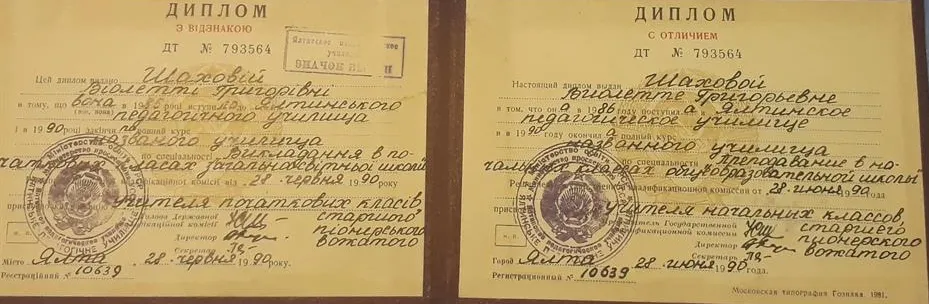 ДИПЛОМ
З ВІДЗНАКОЮ
ДТ № 793564
Цей диплом видано Шаховій
Віолетті Григорівні
в тому, що вона в 1986 році вступила до Ялтинського
педагогічного училища
і в 1990 році закінчила повний курс
названого училища
по спеціальності Викладання в по-
чаткових класах загальноосвітньої школи
кваліфікаційної комісії від 28 червня 1990 року
учителя початкових класів
старшого
піонерського
вожатого
Голова Державної
кваліфікаційної комісії
Директор
Секретар
М. П.
Місто Ялта 28 червня 1990 року
Реєстраційний № 10639
ДИПЛОМ
С ОТЛИЧИЕМ
ДТ № 793564
Настоящий диплом выдан Шаховой
Виолетте Григорьевне
в том, что она в 1986 году поступила в Ялтинское
педагогическое училище
и в 1990 году окончила полный курс
названного училища
по специальности Преподавание в на-
чальных классах общеобразовательной школы
квалификационной комиссии от 28 июня 1990
учителя начальных классов
старшего
пионерского
вожатого
Председатель Государственной
квалификационной комиссии
Директор
Секретарь
М. П.
Город Ялта 28 июня 1990 года.
Регистрационный № 10639
Московская типография Гознака. 1981.